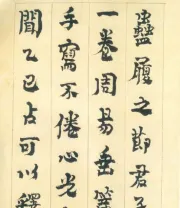 蠱履之節君子
一卷周易垂簾
手寫不倦心光
聞乙巳占可以釋